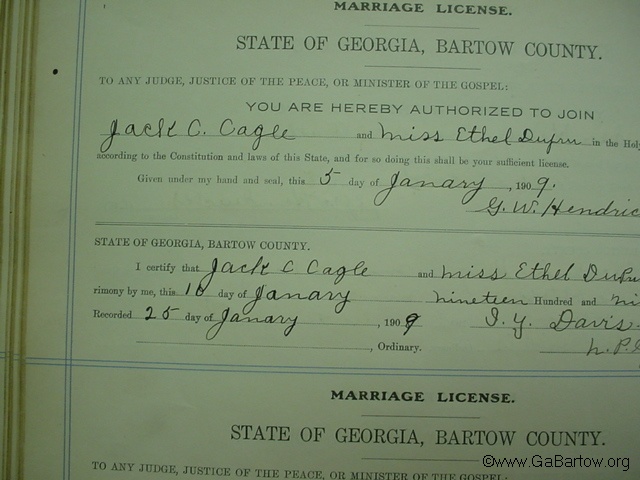 MARRIAGE LICENSE.
STATE OF GEORGIA, BARTOW COUNTY.
TO ANY JUDGE, JUSTICE OF THE PEACE, OR MINISTER OF THE GOSPEL:
YOU ARE HEREBY AUTHORIZED TO JOIN
Jack C. Cagle and Miss Ethel in the Holy
according to the Constitution and laws of this State, and for so doing this shall be your sufficient license.
Given under my hand and seal, this 5 day of Janary, 1909.
G. W. Hendric
STATE OF GEORGIA, BARTOW COUNTY.
I certify that Jack C Cagle and Miss Ethel
rimony by me, this 10 day of Janary nineteen Hundred and ni
Recorded 25 day of Janary, 1909 Davis
, Ordinary. N.P.
MARRIAGE LICENSE.
STATE OF GEORGIA, BARTOW COUNTY.
TO ANY JUDGE, JUSTICE OF THE PEACE, OR MINISTER OF THE GOSPEL:
©www.GaBartow.org